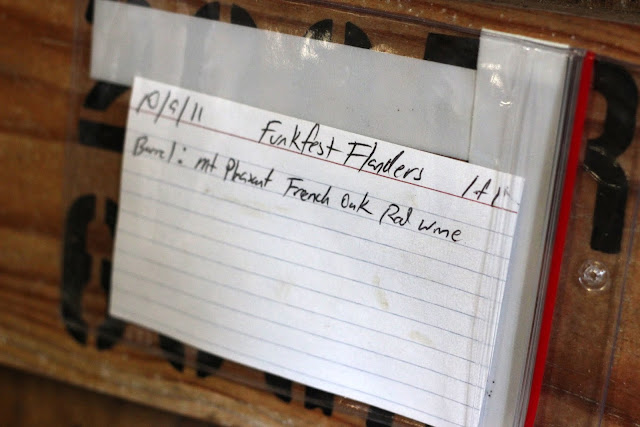 10/9/11 Funkfest Flanders 1 of 1
Barrel: Mt Pleasant French Oak Red Wine